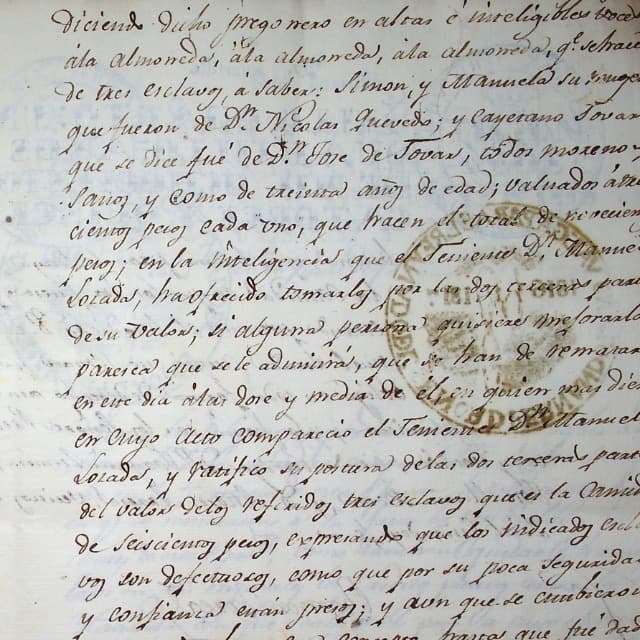 diciendo dicho pregonero en altas é inteligibles voce
ála almoneda, ála almoneda, ála almoneda, qe. se hace
de tres esclavos, á saber: Simon, y Manuela su muger
que fueron de Dn. Nicolas Quevedo; y Cayetano Tovar
que se dice fué de Dn. Jose de Tovar, todos moreno
sanos, y como de treinta años de edad; valuados á tre
cientos pesos cada uno, que hacen el total de novecien
pesos; en la inteligencia que el Teniente Dn. Manue
Lozada, ha ofrecido tomarlos por las dos terceras par
de su valor; si alguna persona quisiere mejorarlo
paresca que se le admitira, que se han de rematar
en este dia álas doze y media de el en quien mas die
en cuyo acto comparecio el Teniente Dn. Manuel
Lozada, y ratifico su postura delas dos terceras part
del valor delos referidos tres esclavos que es la Canti
de seiscientos pesos, expresando que los indicados escla
vos son defectuosos, como que por su poca segurida
y confianza están presos; y aun que se
que fué dad